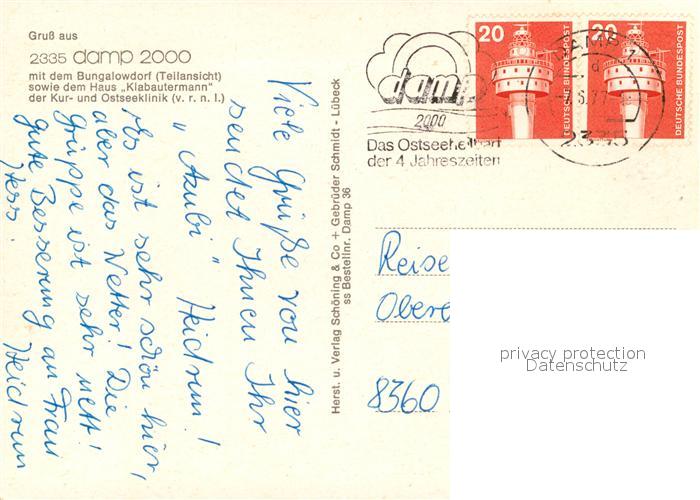 Gruß aus
2335 damp 2000
mit dem Bungalowdorf (Teilansicht)
sowie dem Haus „Klabautermann"
der Kur- und Ostseeklinik (v. r. n. l.)
Viele Grüße von hier
sendet Ihnen Ihr
„Azubi" Heidrun!
Es ist sehr schön hier,
aber das Wetter! Die
Gruppe ist sehr nett!
gute Besserung an Frau
Hess. Heidrun
Herst. u. Verlag Schöning & Co + Gebrüder Schmidt - Lübeck
ss Bestellnr. Damp 36
damp
2000
Das Ostseeheilbad
der 4 Jahreszeiten
20
DEUTSCHE BUNDESPOST
20
DEUTSCHE BUNDESPOST
DAMP
d
2335
Reise
Obere
8360
privacy protection
Datenschutz